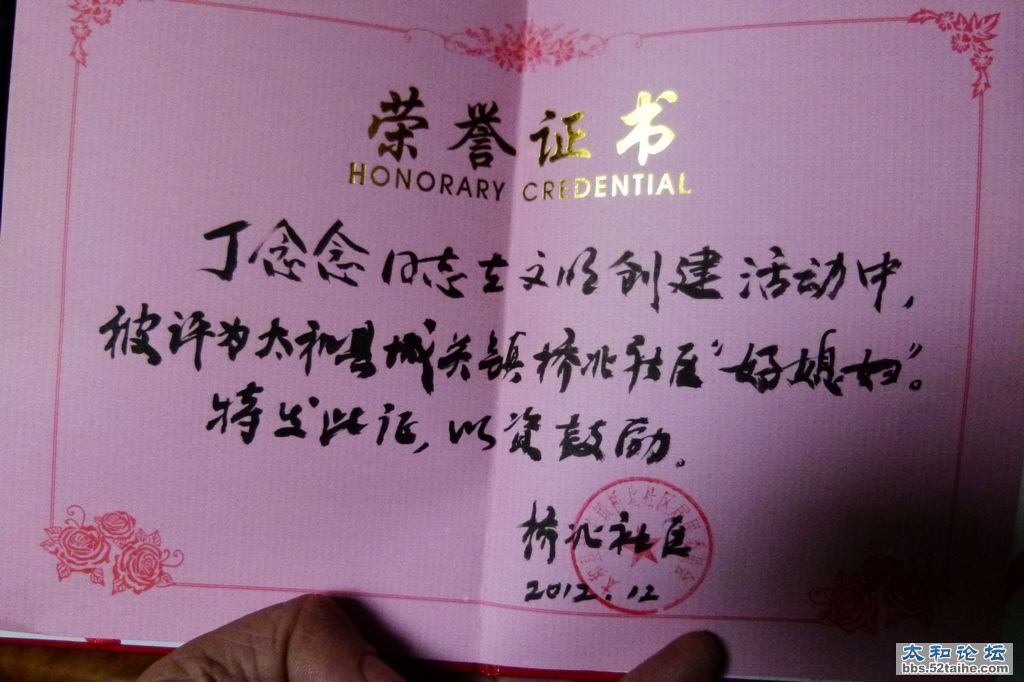 荣誉证书
HONORARY CREDENTIAL
丁念念同志在文明创建活动中,
被评为太和县城关镇桥北社区“好媳妇”。
特发此证,以资鼓励。
桥北社区
2012.12
太和论坛
bbs.52taihe.com